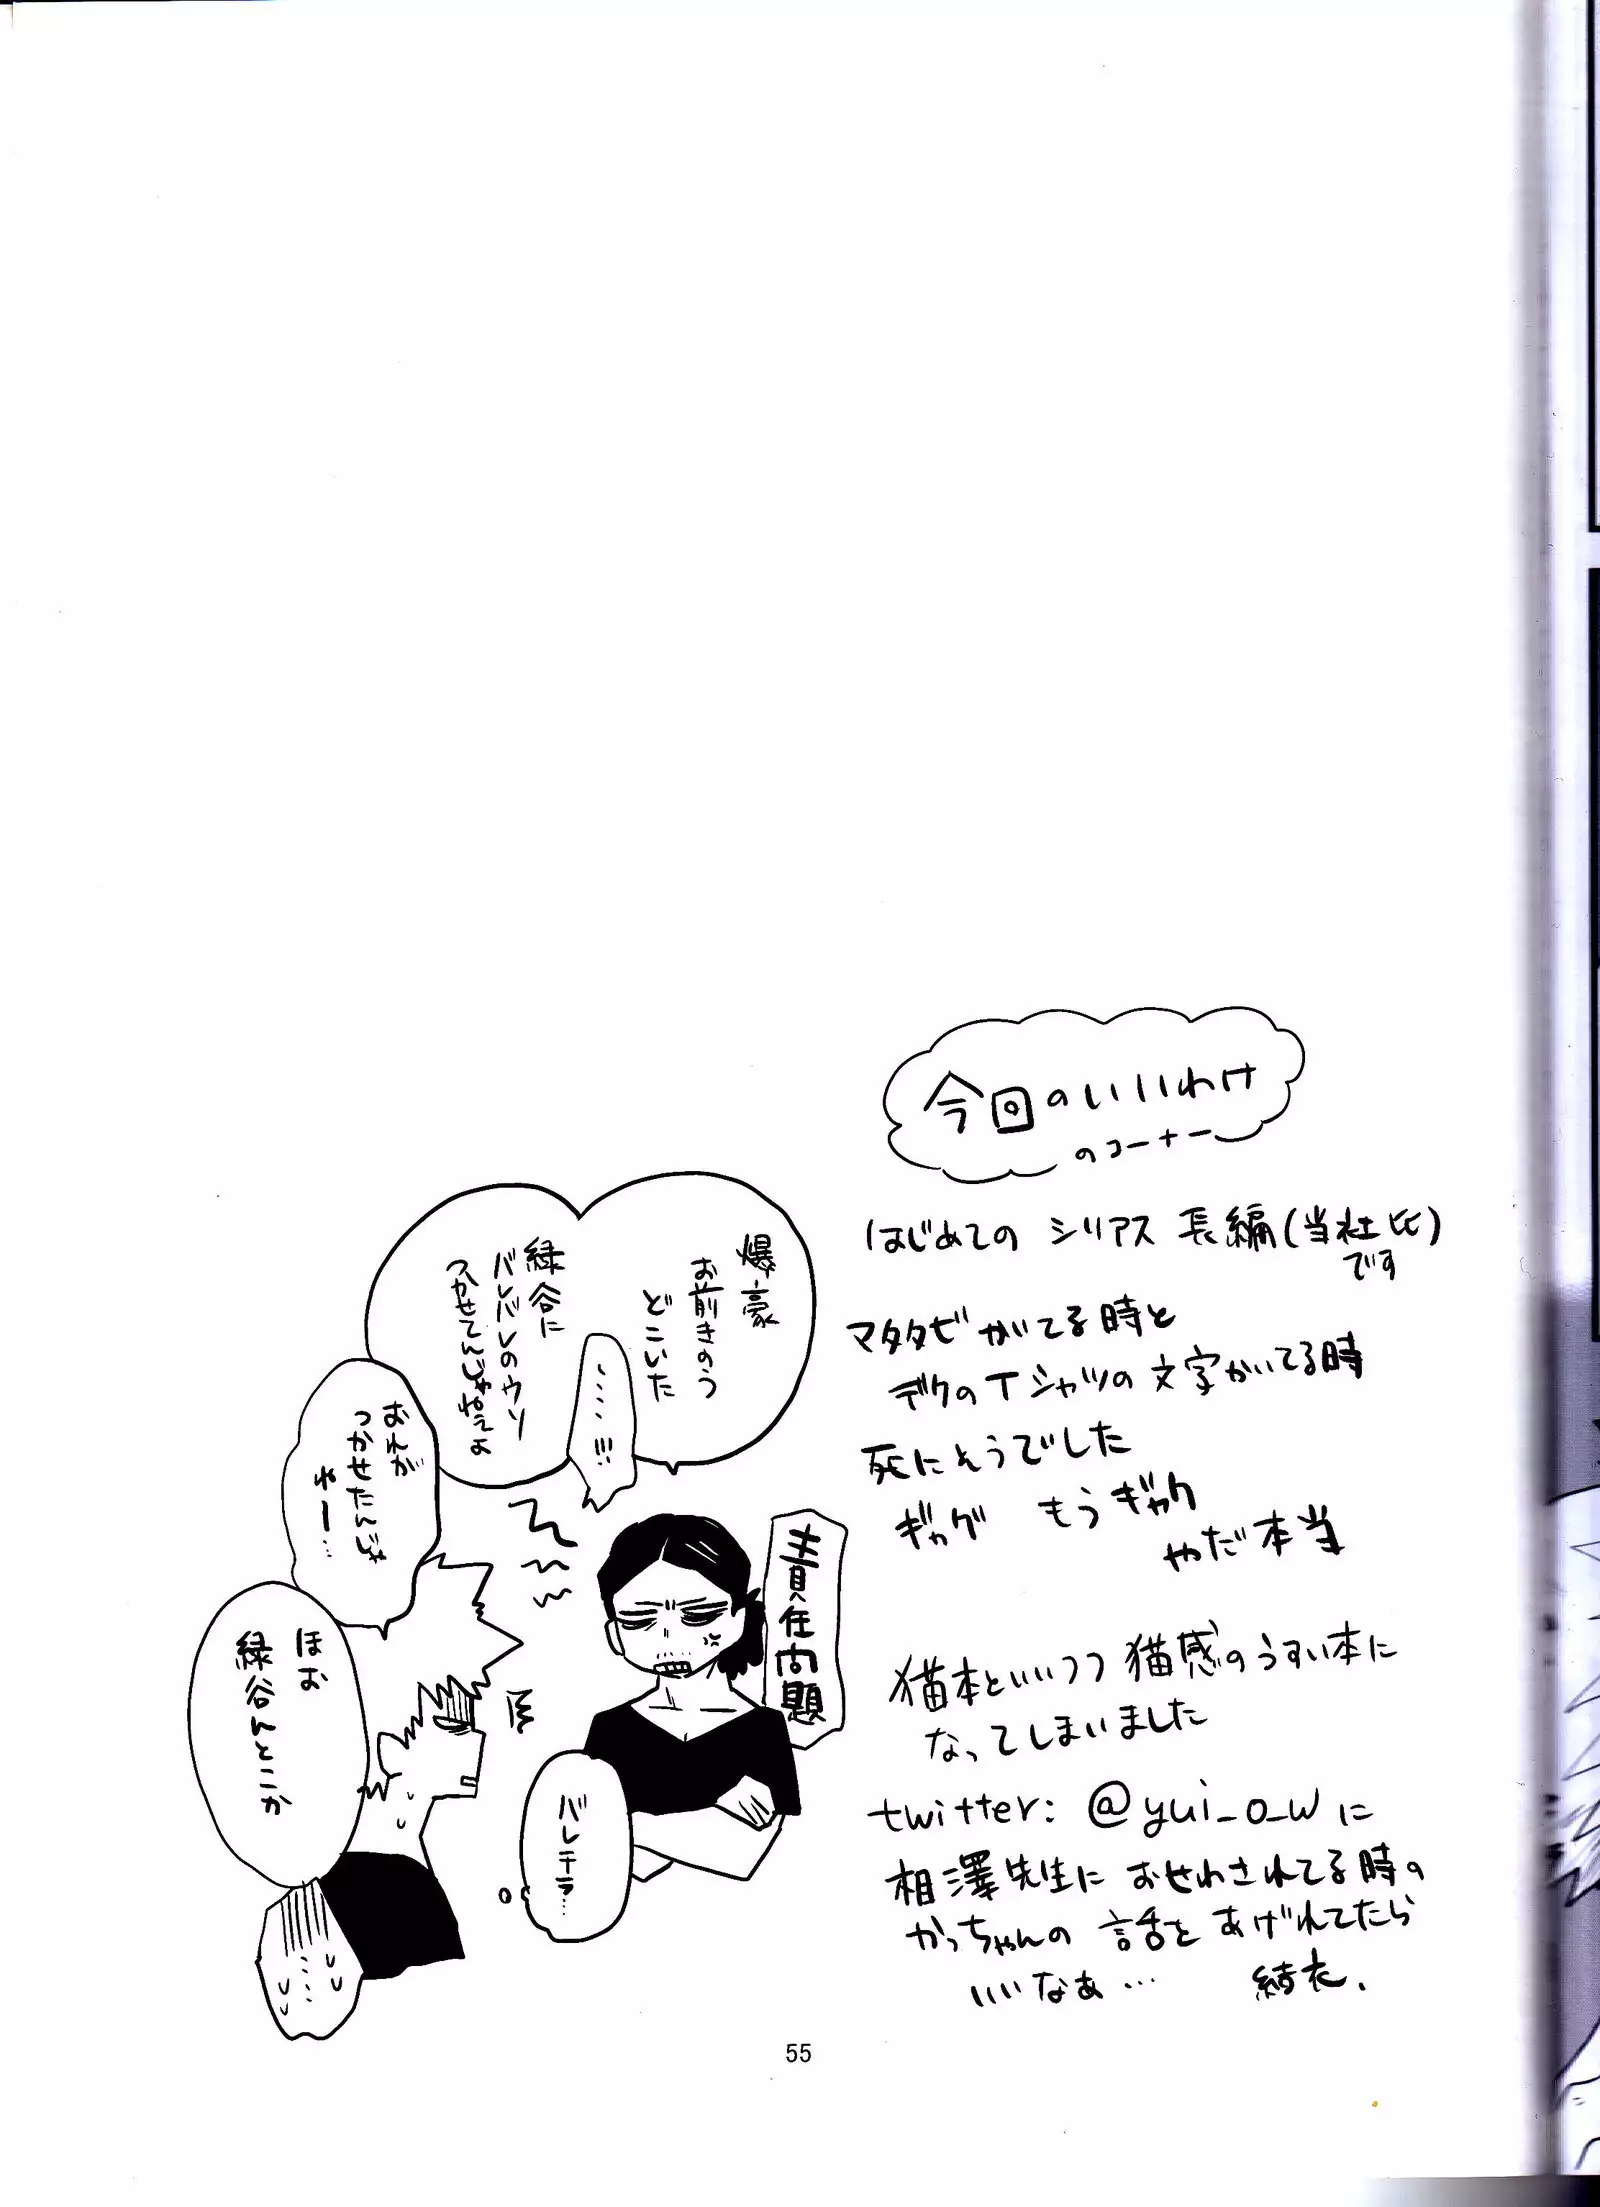 今回のいいわけ
のコーナー
はじめての シリアス 長編(当社比)
です
マタタビがいてる時と
デクのTシャツの文字かいてる時
死にそうでした
ギャグ もうギャク
やだ本当
猫本といいつつ猫感のうすい本に
なってしまいました
twitter: @yui_o_wに
相澤先生に おせわされてる時の
かっちゃんの 話をあげれてたら
いいなぁ… 結衣.
爆豪
お前きのう
どこいた
緑谷に
バレバレのウソ
つかせてんじゃねぇよ
……!!!
おれが
つかせたんじゃ
ねー…
責任問題
ほお
緑谷んとこか
バレテラ…
……
55